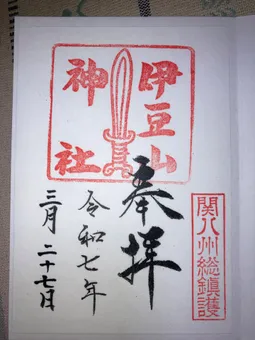 伊豆山
神社
奉拝
関八州総鎮護
令和七年
三月二十七日